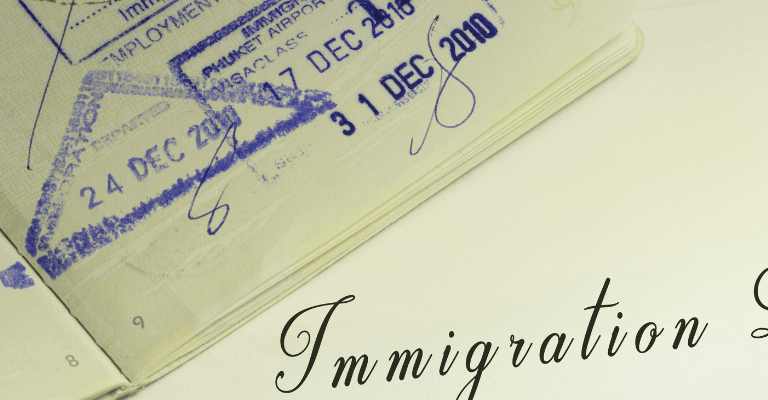 EMPLOYMENT
IMMIGR
PHUKET AIRPORT
VISACLASS
17 DEC 2010
31 DEC 2010
DEPARTED
24 DEC 2010
9
8
Immigration